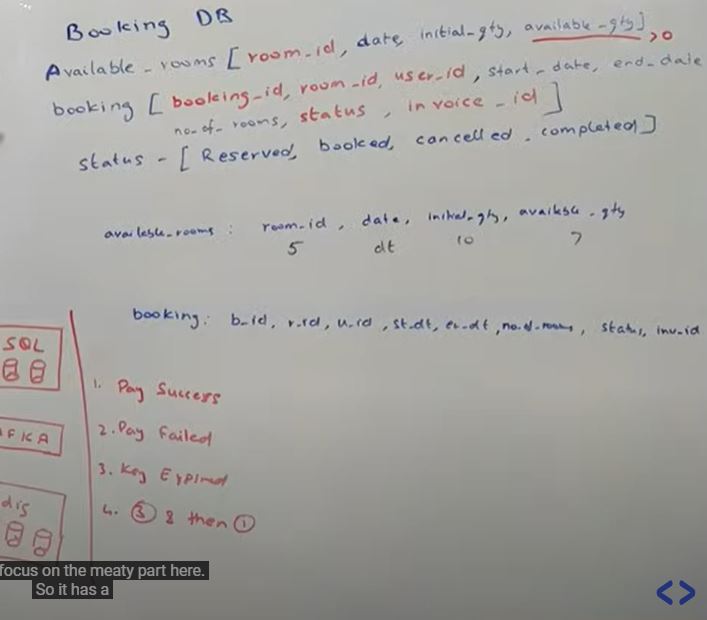 Booking DB
Available_rooms [room_id, date, initial_qty, available_qty] >0
booking [booking_id, room_id, user_id, start_date, end_date
no_of_rooms, status, invoice_id]
status - [Reserved, booked, cancelled, completed]
available_rooms : room_id, date, initial_qty, available_qty
5 dt 10 7
booking: b_id, r_id, u_id, st_dt, en_dt, no_of_rooms, status, inv_id
SQL
1. Pay Success
FKA
2. Pay Failed
3. Key Expired
dis
4. ③ & then ①
focus on the meaty part here.
So it has a
<>